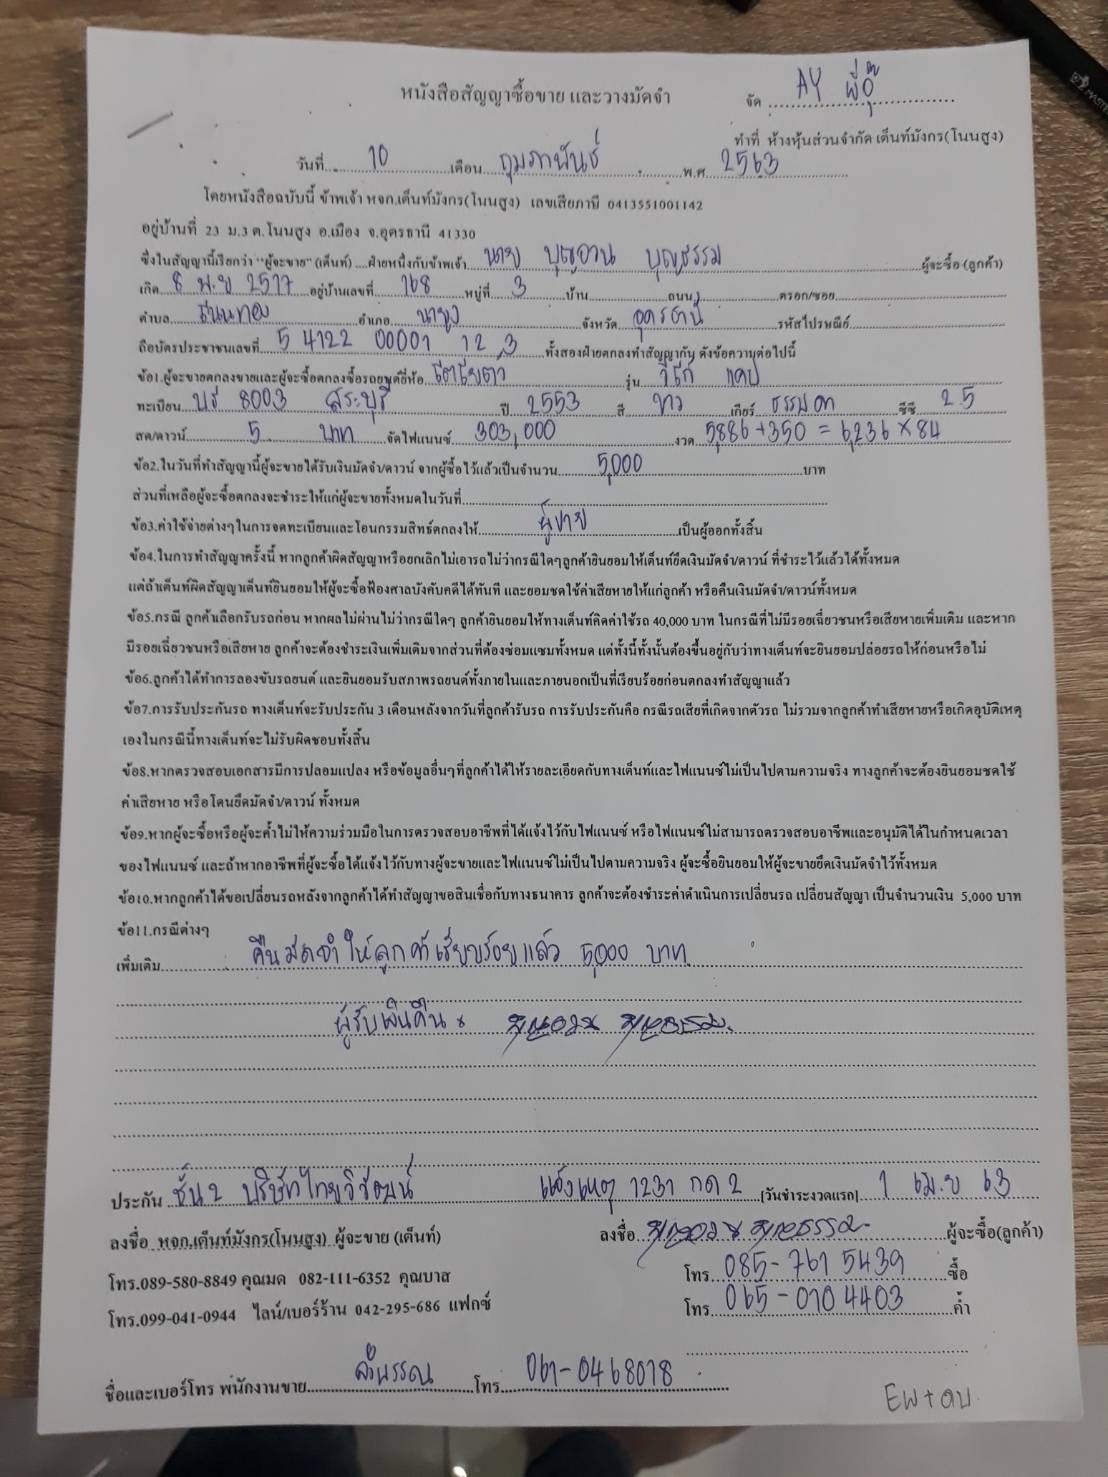 หนังสือสัญญาซื้อขาย และวางมัดจำ
จัด AY พี่อู๊
ทำที่ ห้างหุ้นส่วนจำกัด เต็นท์มังกร(โนนสูง)
วันที่ 10 เดือน กุมภาพันธ์ พ.ศ. 2563
โดยหนังสือฉบับนี้ ข้าพเจ้า หจก.เต็นท์มังกร(โนนสูง) เลขเสียภาษี 0413551001142
อยู่บ้านที่ 23 ม.3 ต.โนนสูง อ.เมือง จ.อุดรธานี 41330
ซึ่งในสัญญานี้เรียกว่า "ผู้จะขาย" (เต็นท์) ....ฝ่ายหนึ่งกับข้าพเจ้า นาย บุญอวน บุญธรรม ผู้จะซื้อ (ลูกค้า)
เกิด 8 พ.ย 2517 อยู่บ้านเลขที่ 168 หมู่ที่ 3 บ้าน ถนน ตรอก/ซอย
ตำบล อำเภอ นายูง จังหวัด อุดรธานี รหัสไปรษณีย์
ถือบัตรประชาชนเลขที่ 5 4122 00001 12 3 ทั้งสองฝ่ายตกลงทำสัญญากัน ดังข้อความต่อไปนี้
ข้อ1.ผู้จะขายตกลงขายและผู้จะซื้อตกลงซื้อรถยนต์ยี่ห้อ โตโยต้า รุ่น วีโก้ แคป
ทะเบียน บร 8003 สระบุรี ปี 2553 สี ขาว เกียร์ ธรรมดา ซีซี 25
สด/ดาวน์ 5 บาท จัดไฟแนนซ์ 303,000 งวด 5,886+350 = 6,236 × 84
ข้อ2.ในวันที่ทำสัญญานี้ผู้จะขายได้รับเงินมัดจำ/ดาวน์ จากผู้ซื้อไว้แล้วเป็นจำนวน 5,000 บาท
ส่วนที่เหลือผู้จะซื้อตกลงจะชำระให้แก่ผู้จะขายทั้งหมดในวันที่
ข้อ3.ค่าใช้จ่ายต่างๆในการจดทะเบียนและโอนกรรมสิทธิ์ตกลงให้ ผู้ขาย เป็นผู้ออกทั้งสิ้น
ข้อ4.ในการทำสัญญาครั้งนี้ หากลูกค้าผิดสัญญาหรือยกเลิกไม่เอารถไม่ว่ากรณีใดๆลูกค้ายินยอมให้เต็นท์ยึดเงินมัดจำ/ดาวน์ ที่ชำระไว้แล้วได้ทั้งหมด
แต่ถ้าเต็นท์ผิดสัญญาเต็นท์ยินยอมให้ผู้จะซื้อฟ้องศาลบังคับคดีได้ทันที และยอมชดใช้ค่าเสียหายให้แก่ลูกค้า หรือคืนเงินมัดจำ/ดาวน์ทั้งหมด
ข้อ5.กรณี ลูกค้าเลือกรับรถก่อน หากผลไม่ผ่านไม่ว่ากรณีใดๆ ลูกค้ายินยอมให้ทางเต็นท์คิดค่าใช้รถ 40,000 บาท ในกรณีที่ไม่มีรอยเฉี่ยวชนหรือเสียหายเพิ่มเติม และหาก
มีรอยเฉี่ยวชนหรือเสียหาย ลูกค้าจะต้องชำระเงินเพิ่มเติมจากส่วนที่ต้องซ่อมแซมทั้งหมด แต่ทั้งนี้ทั้งนั้นต้องขึ้นอยู่กับว่าทางเต็นท์จะยินยอมปล่อยรถให้ก่อนหรือไม่
ข้อ6.ลูกค้าได้ทำการลองขับรถยนต์ และยินยอมรับสภาพรถยนต์ทั้งภายในและภายนอกเป็นที่เรียบร้อยก่อนตกลงทำสัญญาแล้ว
ข้อ7.การรับประกันรถ ทางเต็นท์จะรับประกัน 3 เดือนหลังจากวันที่ลูกค้ารับรถ การรับประกันคือ กรณีรถเสียที่เกิดจากตัวรถ ไม่รวมจากลูกค้าทำเสียหายหรือเกิดอุบัติเหตุ
เองในกรณีนี้ทางเต็นท์จะไม่รับผิดชอบทั้งสิ้น
ข้อ8.หากตรวจสอบเอกสารมีการปลอมแปลง หรือข้อมูลอื่นๆที่ลูกค้าได้ให้รายละเอียดกับทางเต็นท์และไฟแนนซ์ไม่เป็นไปตามความจริง ทางลูกค้าจะต้องยินยอมชดใช้
ค่าเสียหาย หรือโดนยึดมัดจำ/ดาวน์ ทั้งหมด
ข้อ9.หากผู้จะซื้อหรือผู้จะค้ำไม่ให้ความร่วมมือในการตรวจสอบอาชีพที่ได้แจ้งไว้กับไฟแนนซ์ หรือไฟแนนซ์ไม่สามารถตรวจสอบอาชีพและอนุมัติได้ในกำหนดเวลา
ของไฟแนนซ์ และถ้าหากอาชีพที่ผู้จะซื้อได้แจ้งไว้กับทางผู้จะขายและไฟแนนซ์ไม่เป็นไปตามความจริง ผู้จะซื้อยินยอมให้ผู้จะขายยึดเงินมัดจำไว้ทั้งหมด
ข้อ10.หากลูกค้าได้ขอเปลี่ยนรถหลังจากลูกค้าได้ทำสัญญาขอสินเชื่อกับทางธนาคาร ลูกค้าจะต้องชำระค่าดำเนินการเปลี่ยนรถ เปลี่ยนสัญญา เป็นจำนวนเงิน 5,000 บาท
ข้อ11.กรณีต่างๆ
เพิ่มเติม คืนมัดจำ ให้ลูกค้าเรียบร้อยแล้ว 5,000 บาท
ผู้รับเงินคืน x บุญอวน บุญธรรม
ประกัน ชั้น 2 บริษัทไทยวิวัฒน์ แจ้งเหตุ 1231 กด 2 [วันชำระงวดแรก] 1 เม.ย 63
ลงชื่อ หจก.เต็นท์มังกร(โนนสูง) ผู้จะขาย (เต็นท์) ลงชื่อ บุญอวน บุญธรรม ผู้จะซื้อ(ลูกค้า)
โทร.089-580-8849 คุณมด 082-111-6352 คุณบาส โทร 085-761 5439 ซื้อ
โทร.099-041-0944 ไลน์/เบอร์ร้าน 042-295-686 แฟกซ์ โทร 065-010 4403 ค้ำ
ชื่อและเบอร์โทร พนักงานขาย ลำพรรณ โทร 061-0468018